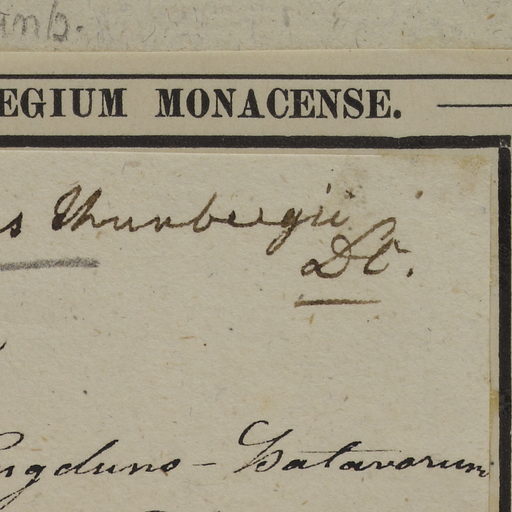 unb.
EGIUM MONACENSE.
s Thunbergii
DC.
ngduno - Batavorum